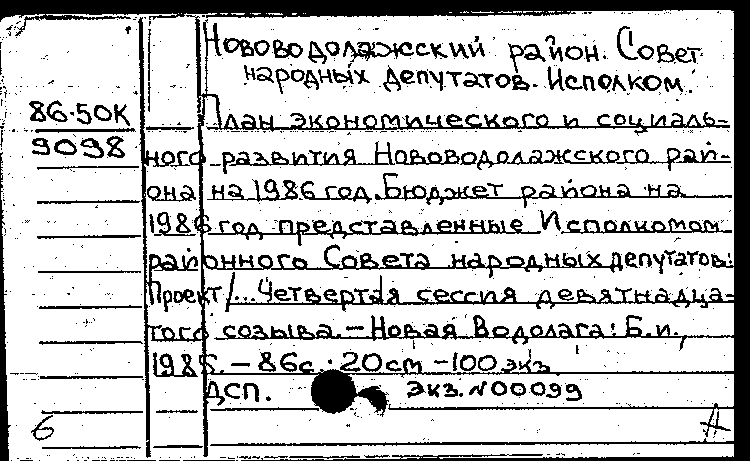 Нововодолажский район. Совет
народных депутатов. Исполком.
86-50К
9098
План экономического и социаль-
ного развития Нововодолажского рай-
она на 1986 год. Бюджет района на
1986 год представленные Исполкомом
районного Совета народных депутатов:
Проект/... Четвертая сессия девятнадца-
того созыва. - Новая Водолага: Б.и.,
1985. - 86с.: 20см - 100 экз.
ДСП. Экз. №00099
6
А